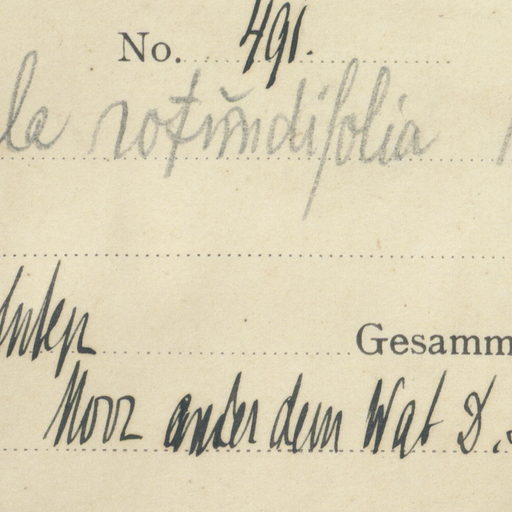 No. 491.
la rotundifolia
Gesamm
Moor ander dem Wat D.